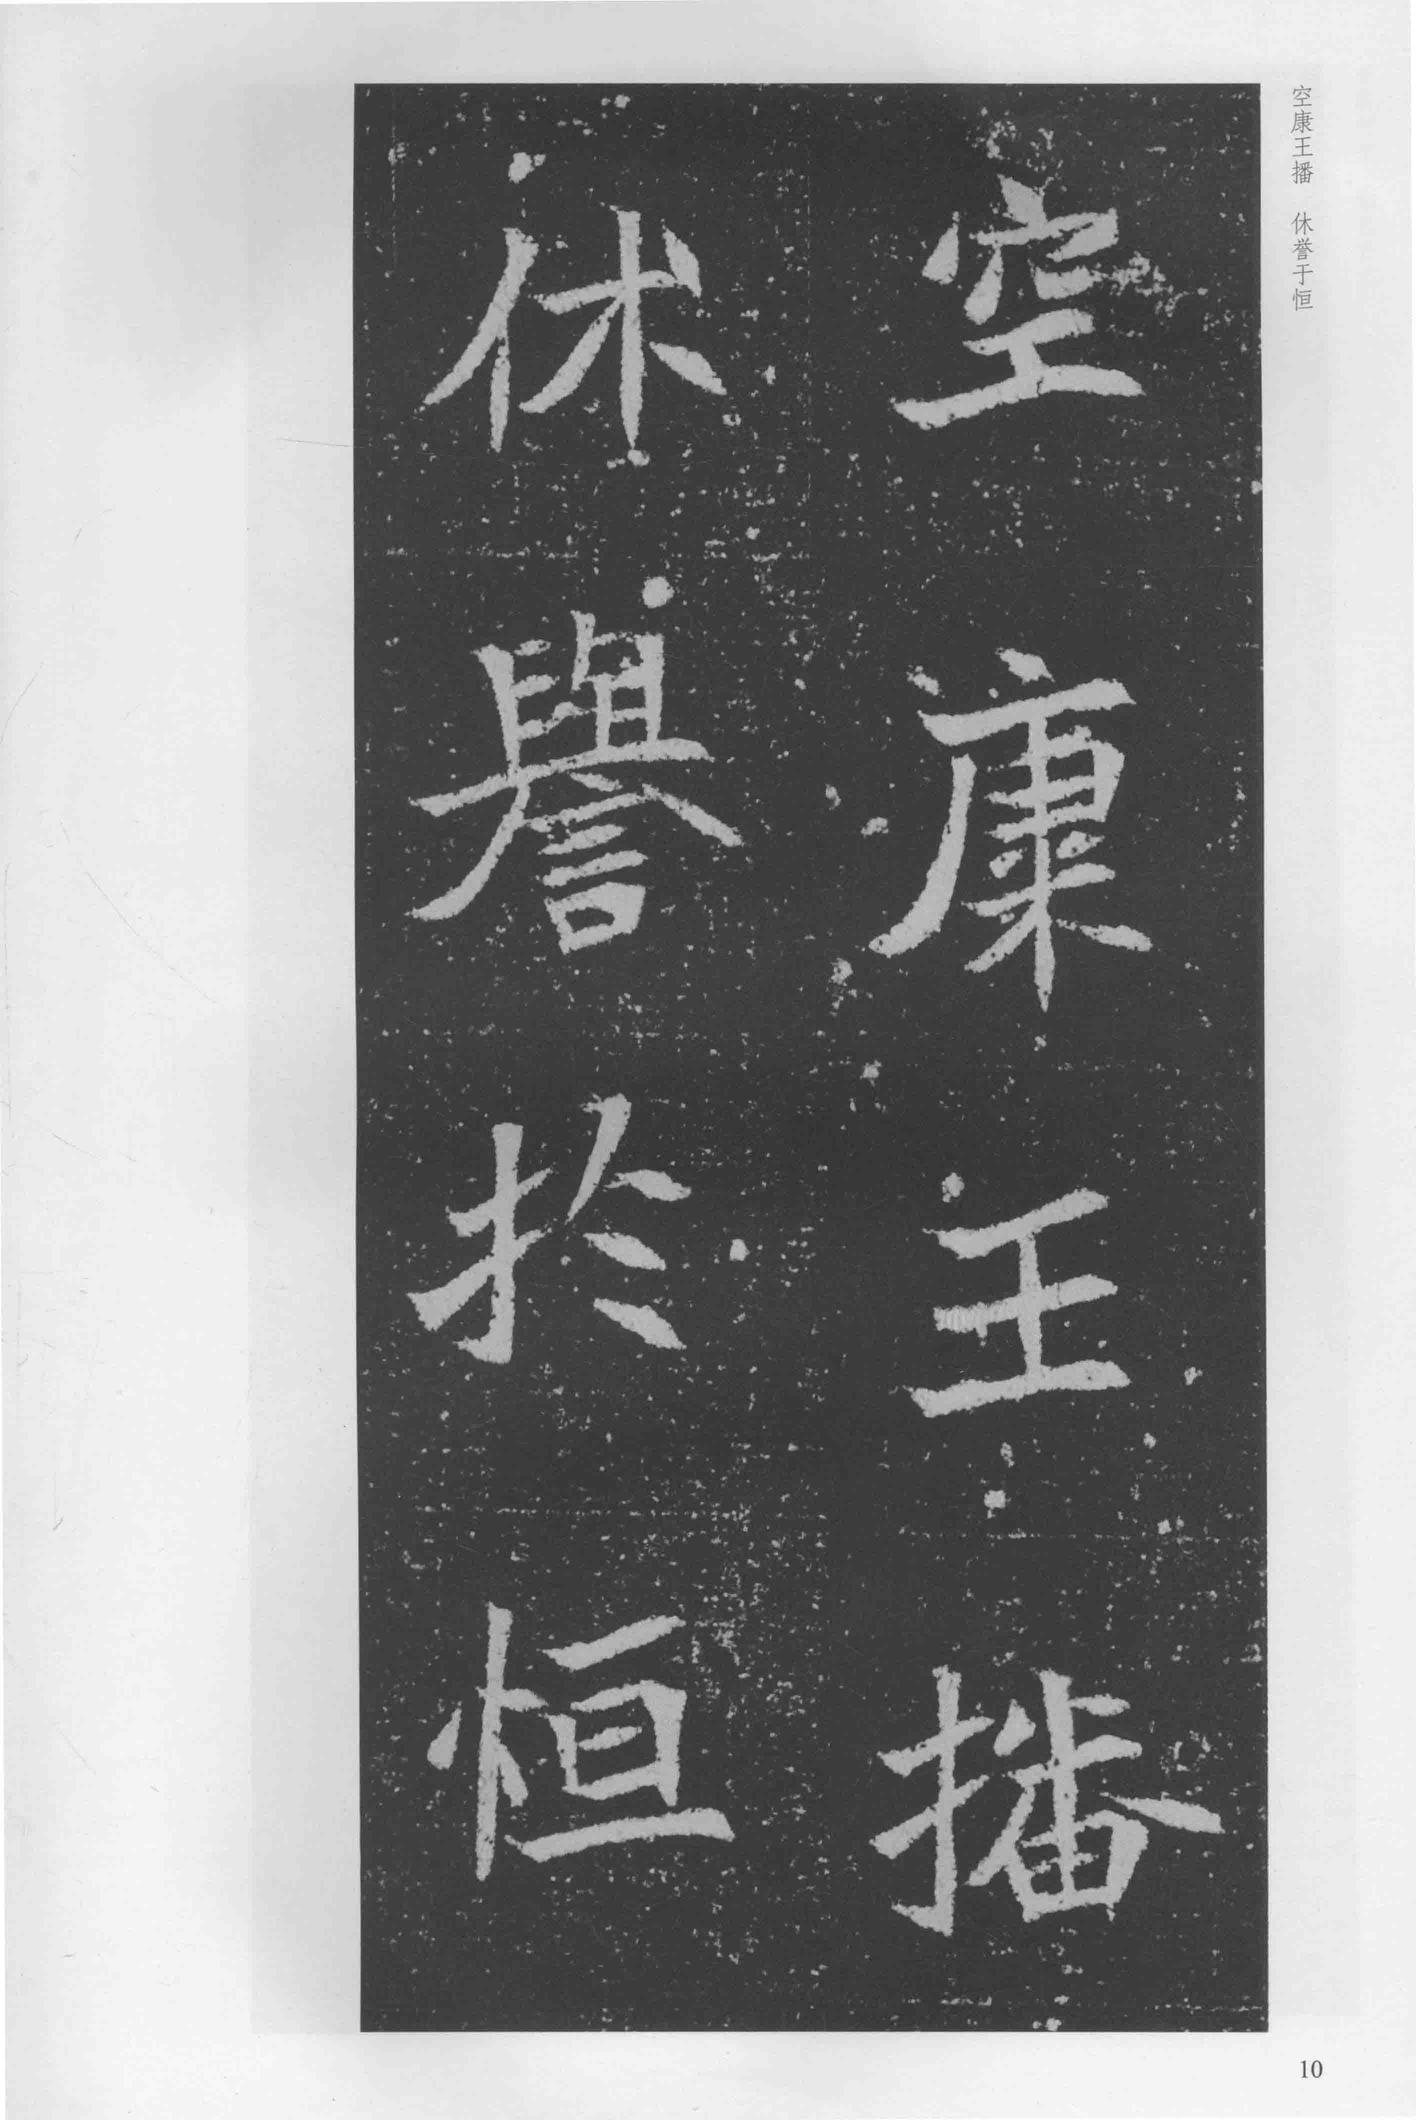 空康王播　休誉于恒
空康王播
休譽於恒
10